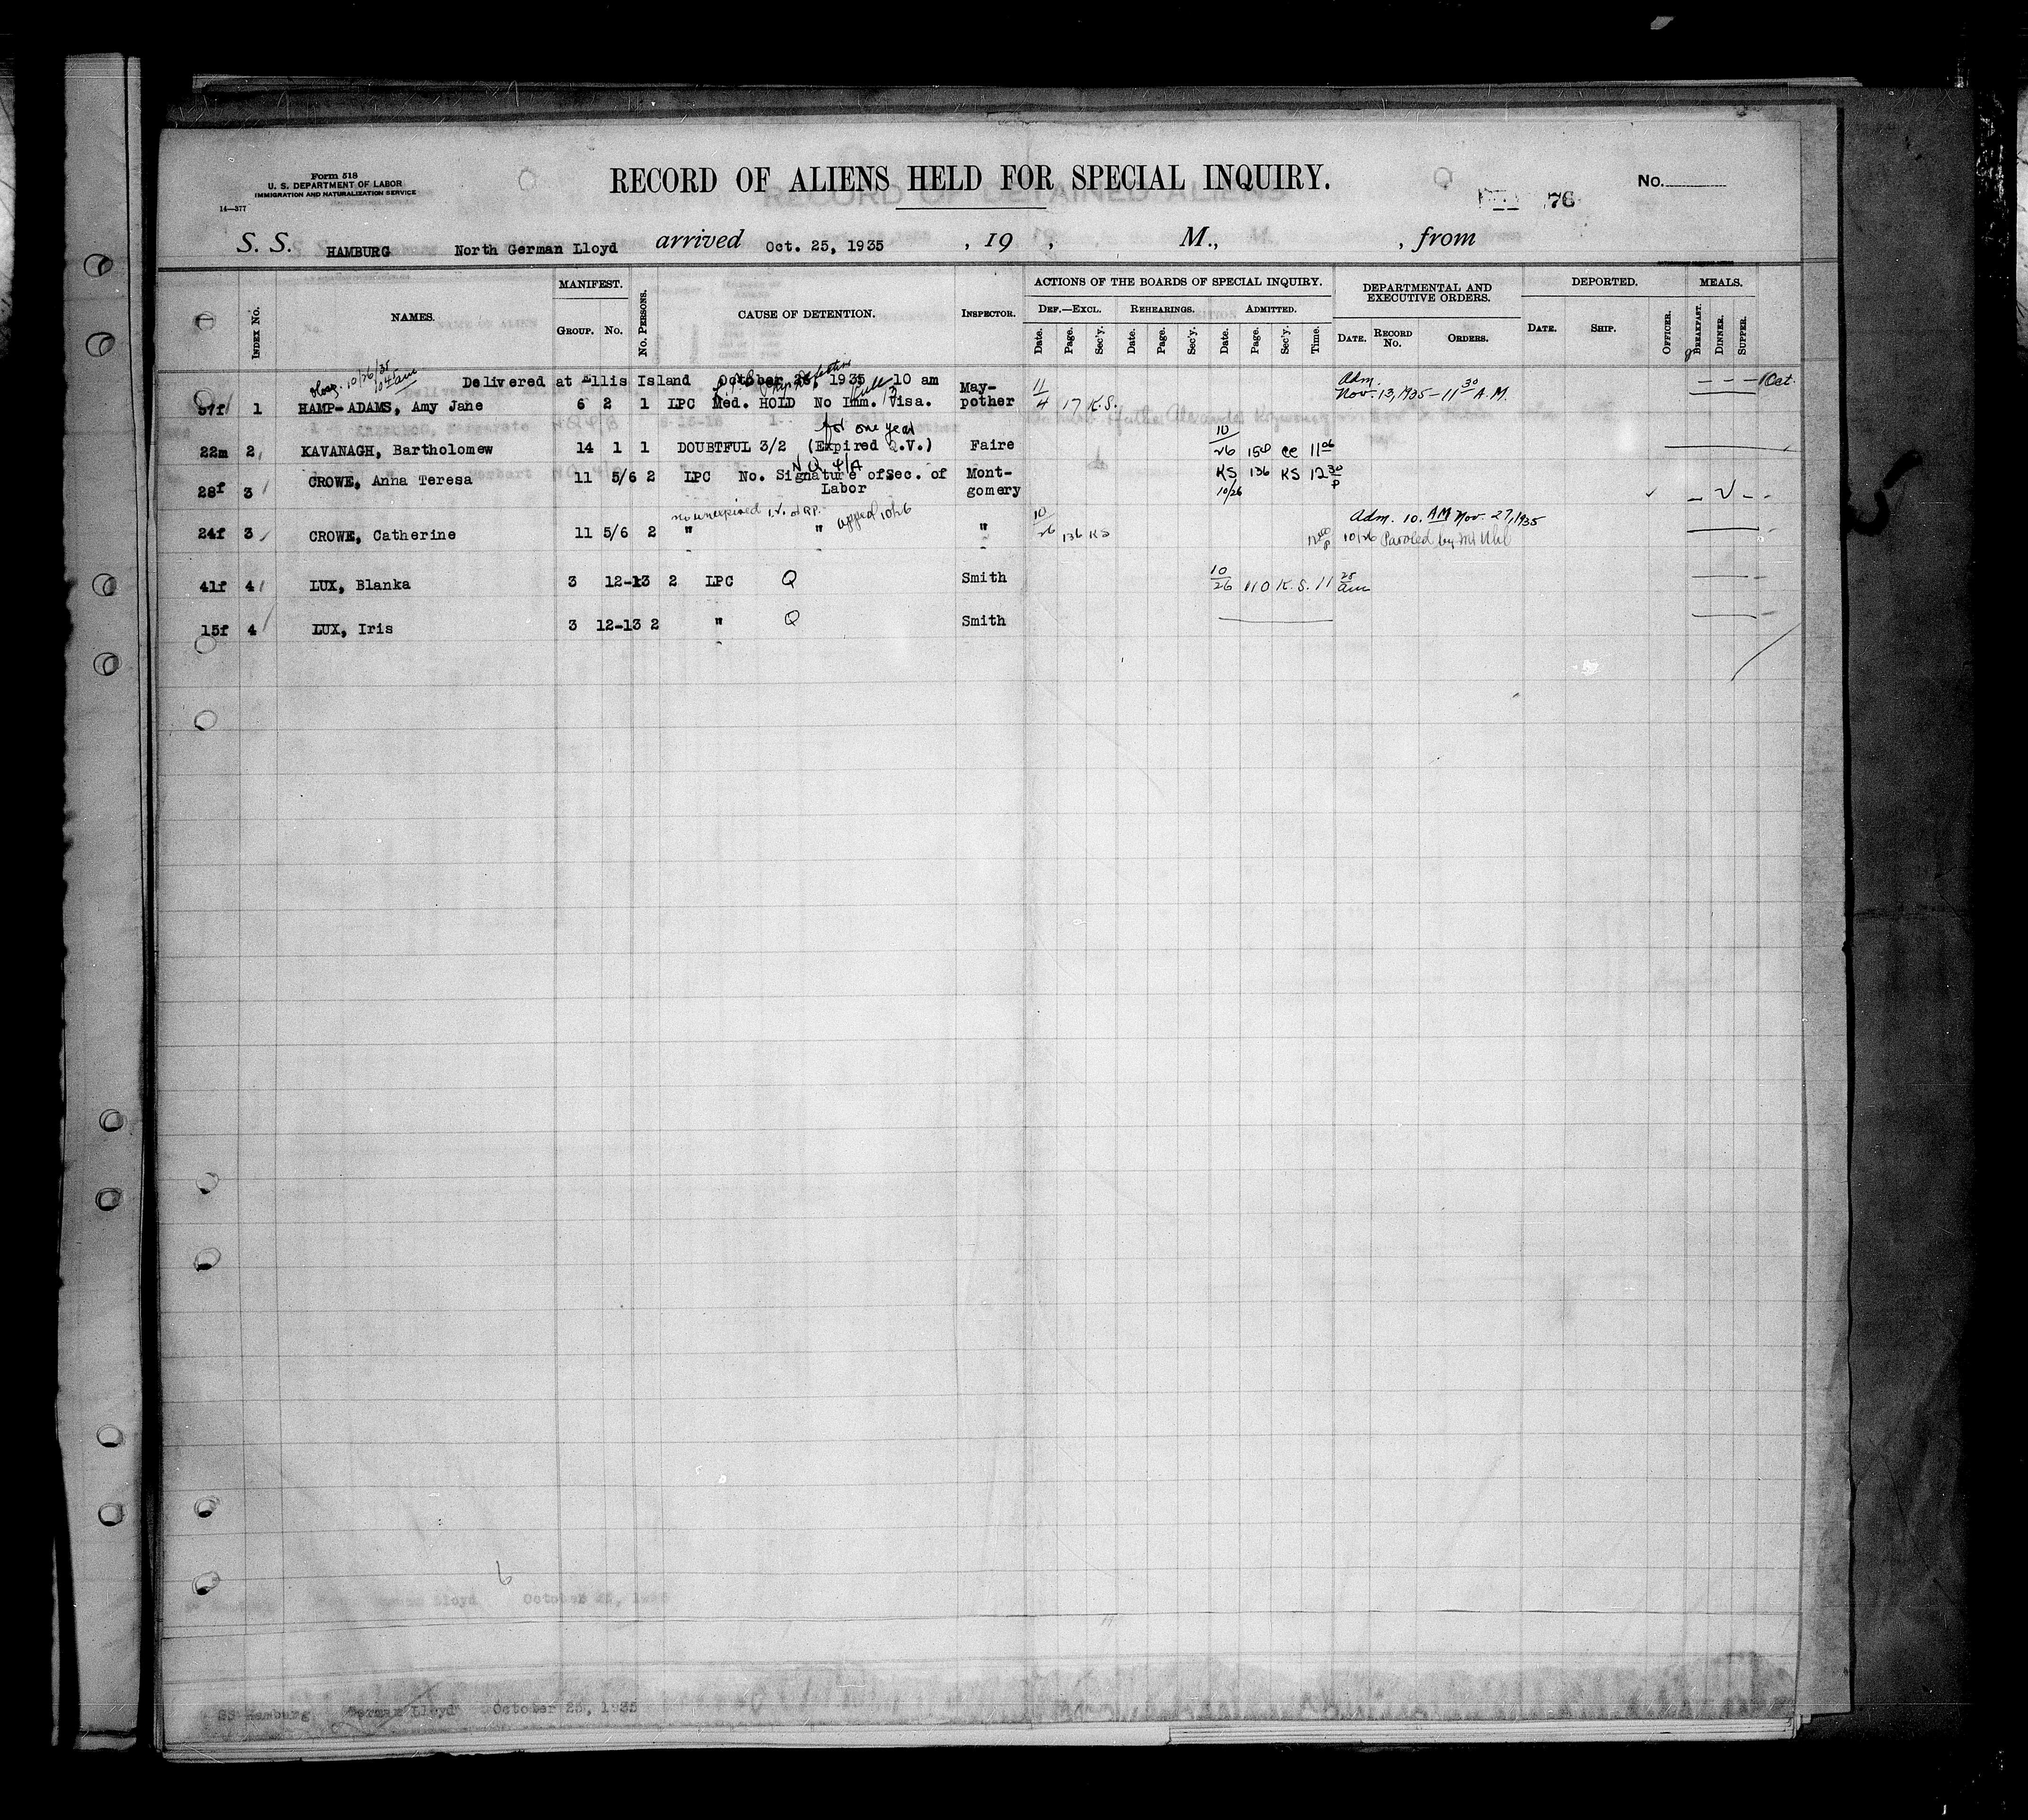 Form 518
U. S. DEPARTMENT OF LABOR
IMMIGRATION AND NATURALIZATION SERVICE
14—377
RECORD OF ALIENS HELD FOR SPECIAL INQUIRY.
76
No.
S. S. HAMBURG North German Lloyd arrived Oct. 25, 1935 , 19 , M., , from
INDEX No.
NAMES.
MANIFEST.
GROUP. No.
No. PERSONS.
CAUSE OF DETENTION.
INSPECTOR.
ACTIONS OF THE BOARDS OF SPECIAL INQUIRY.
DEF.—EXCL. REHEARINGS. ADMITTED.
Date. Page. Sec'y. Date. Page. Sec'y. Date. Page. Sec'y. Time.
DEPARTMENTAL AND
EXECUTIVE ORDERS.
DATE. RECORD No. ORDERS.
DEPORTED.
DATE. SHIP. OFFICER.
MEALS.
BREAKFAST. DINNER. SUPPER.
Hosp. 10/26/35
1045 am
Delivered at Ellis Island October 26, 1935 10 am
57f 1 HAMP-ADAMS, Amy Jane 6 2 1 LPC Med. HOLD No Imm. Visa. May-pother 11/4 17 K.S. Adm. Nov. 13, 1935 — 11 30 A.M.
for one year
22m 2 KAVANAGH, Bartholomew 14 1 1 DOUBTFUL 3/2 (Expired Q.V.) Faire 10/26 150 CC 11 06
28f 3 CROWE, Anna Teresa 11 5/6 2 LPC No. Signature of Sec. of Labor Mont-gomery KS 136 KS 12 30 P
10/26
no unexpired I.V. or R.P. appeal 10/26
24f 3 CROWE, Catherine 11 5/6 2 " " " 10/26 136 KS Adm. 10. AM Nov. 27, 1935
12 40 P 10/26 Paroled by Mr Uhl
41f 4 LUX, Blanka 3 12-13 2 LPC Q Smith 10/26 110 K.S. 11 25 am
15f 4 LUX, Iris 3 12-13 2 " Q Smith
6
Lloyd October 25, 1935
SS Hamburg German Lloyd October 25, 1935